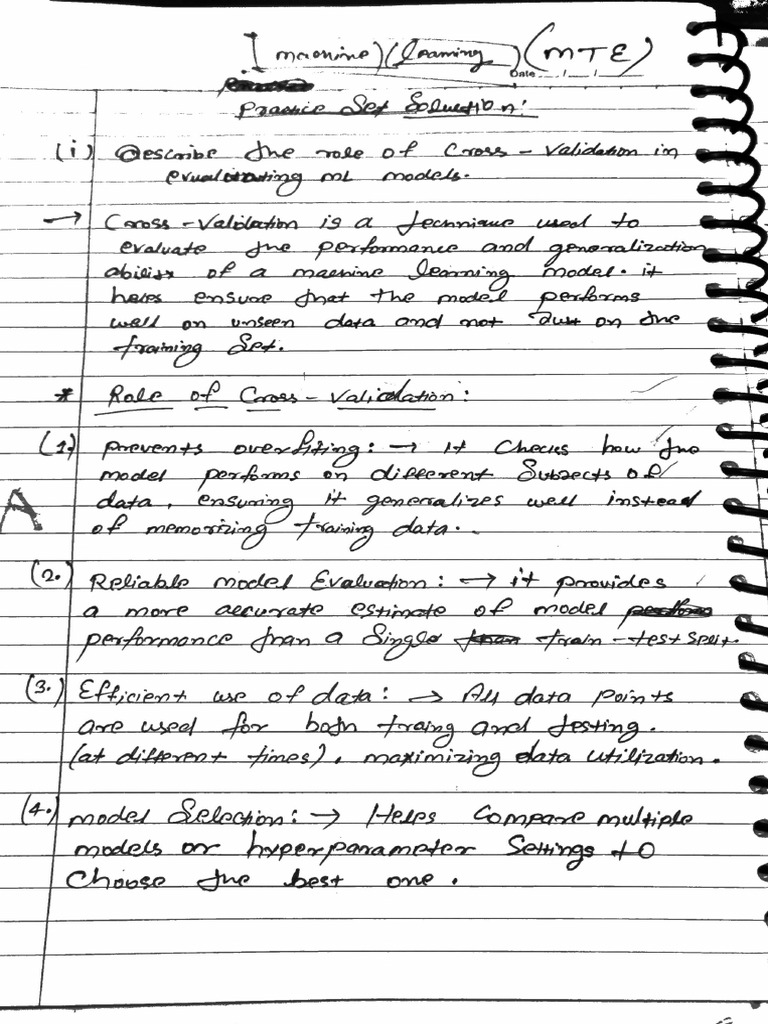 [machine) (learning) (MTE)
Date
Practice Set Solution:
(i) Describe the role of Cross-Validation in
evaluating ML models.
→ Cross-Validation is a technique used to
evaluate the performance and generalization
ability of a machine learning model. it
helps ensure that the model performs
well on unseen data and not Just on the
training Set.
* Role of Cross-Validation:
(1.) prevents overfiting: → It checks how the
model performs on different Subsects of
data, ensuring it generalizes well instead
of memorizing training data.
A
(2.) Reliable model Evaluation: → it provides
a more accurate estimate of model
performance than a Single train-test split.
(3.) Efficient use of data: → All data points
are used for both traing and testing.
(at different times), maximizing data utilization.
(4.) model Selection: → Helps Compare multiple
models or hyperparameter Settings to
Choose the best one.